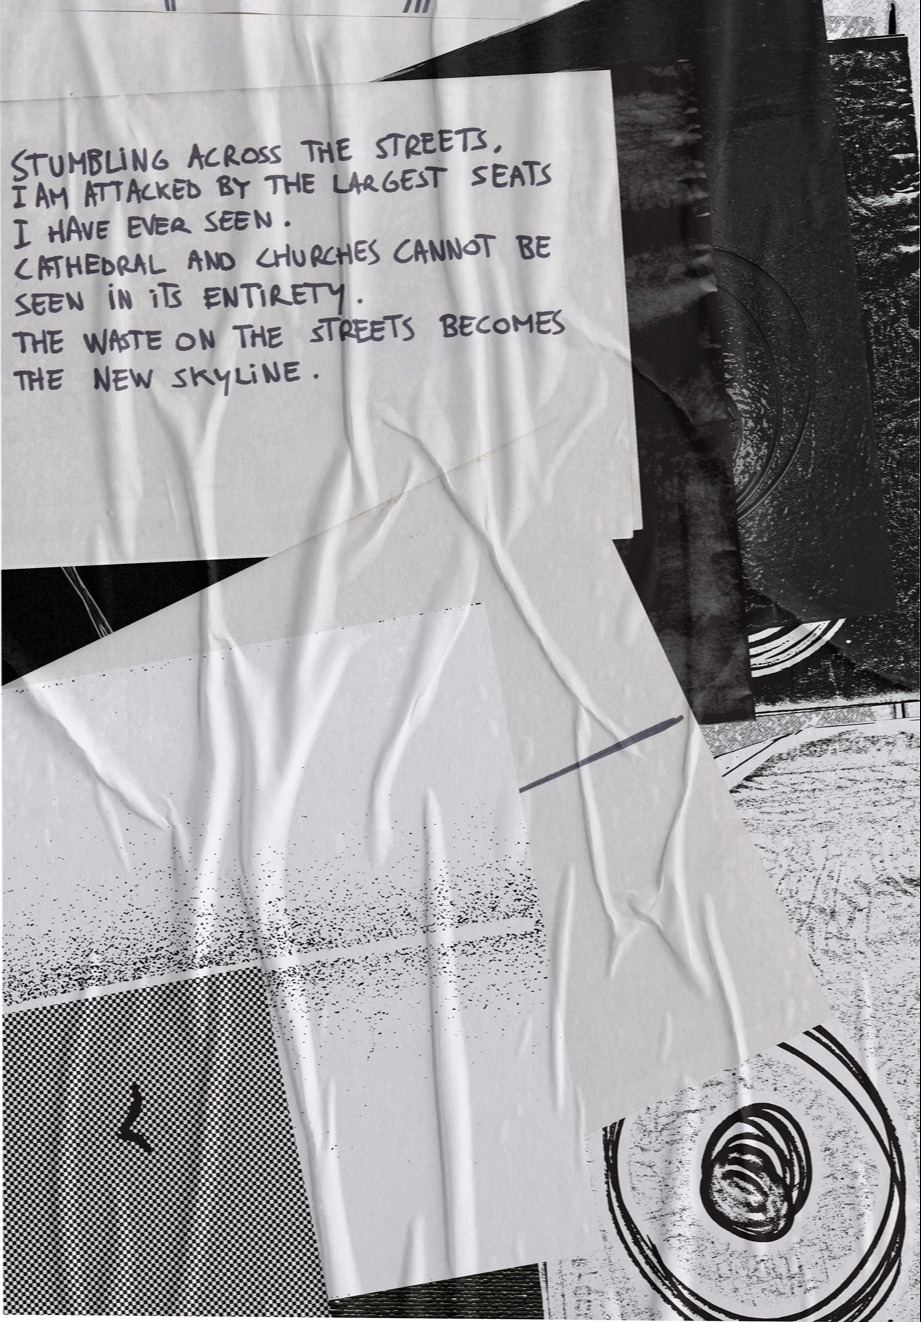 STUMBLING ACROSS THE STREETS.
I AM ATTACKED BY THE LARGEST SEATS
I HAVE EVER SEEN.
CATHEDRAL AND CHURCHES CANNOT BE
SEEN IN ITS ENTIRETY.
THE WASTE ON THE STREETS BECOMES
THE NEW SKYLINE.